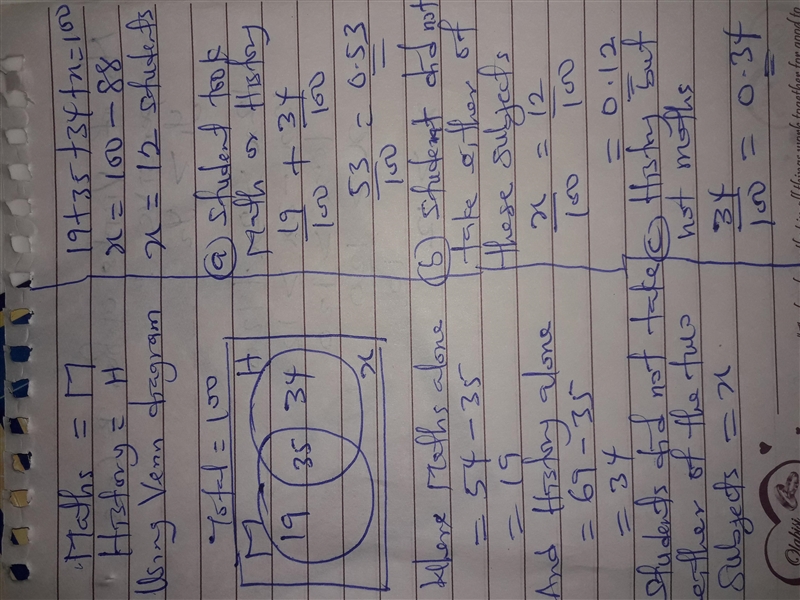 Maths = M
History = H
Using Venn diagram
Total = 100
M
H
19
35
34
x
Where Maths alone
= 54 - 35
= 19
And History alone
= 69 - 35
= 34
Students did not take
either of the two
Subjects = x
19+35+34+x=100
x = 100 - 88
x = 12 students
(a) Student took
Math or History
19/100 + 34/100
53/100 = 0.53
(b) Student did not
take either of
these subjects
x/100 = 12/100
= 0.12
(c) History but
not maths
34/100 = 0.34